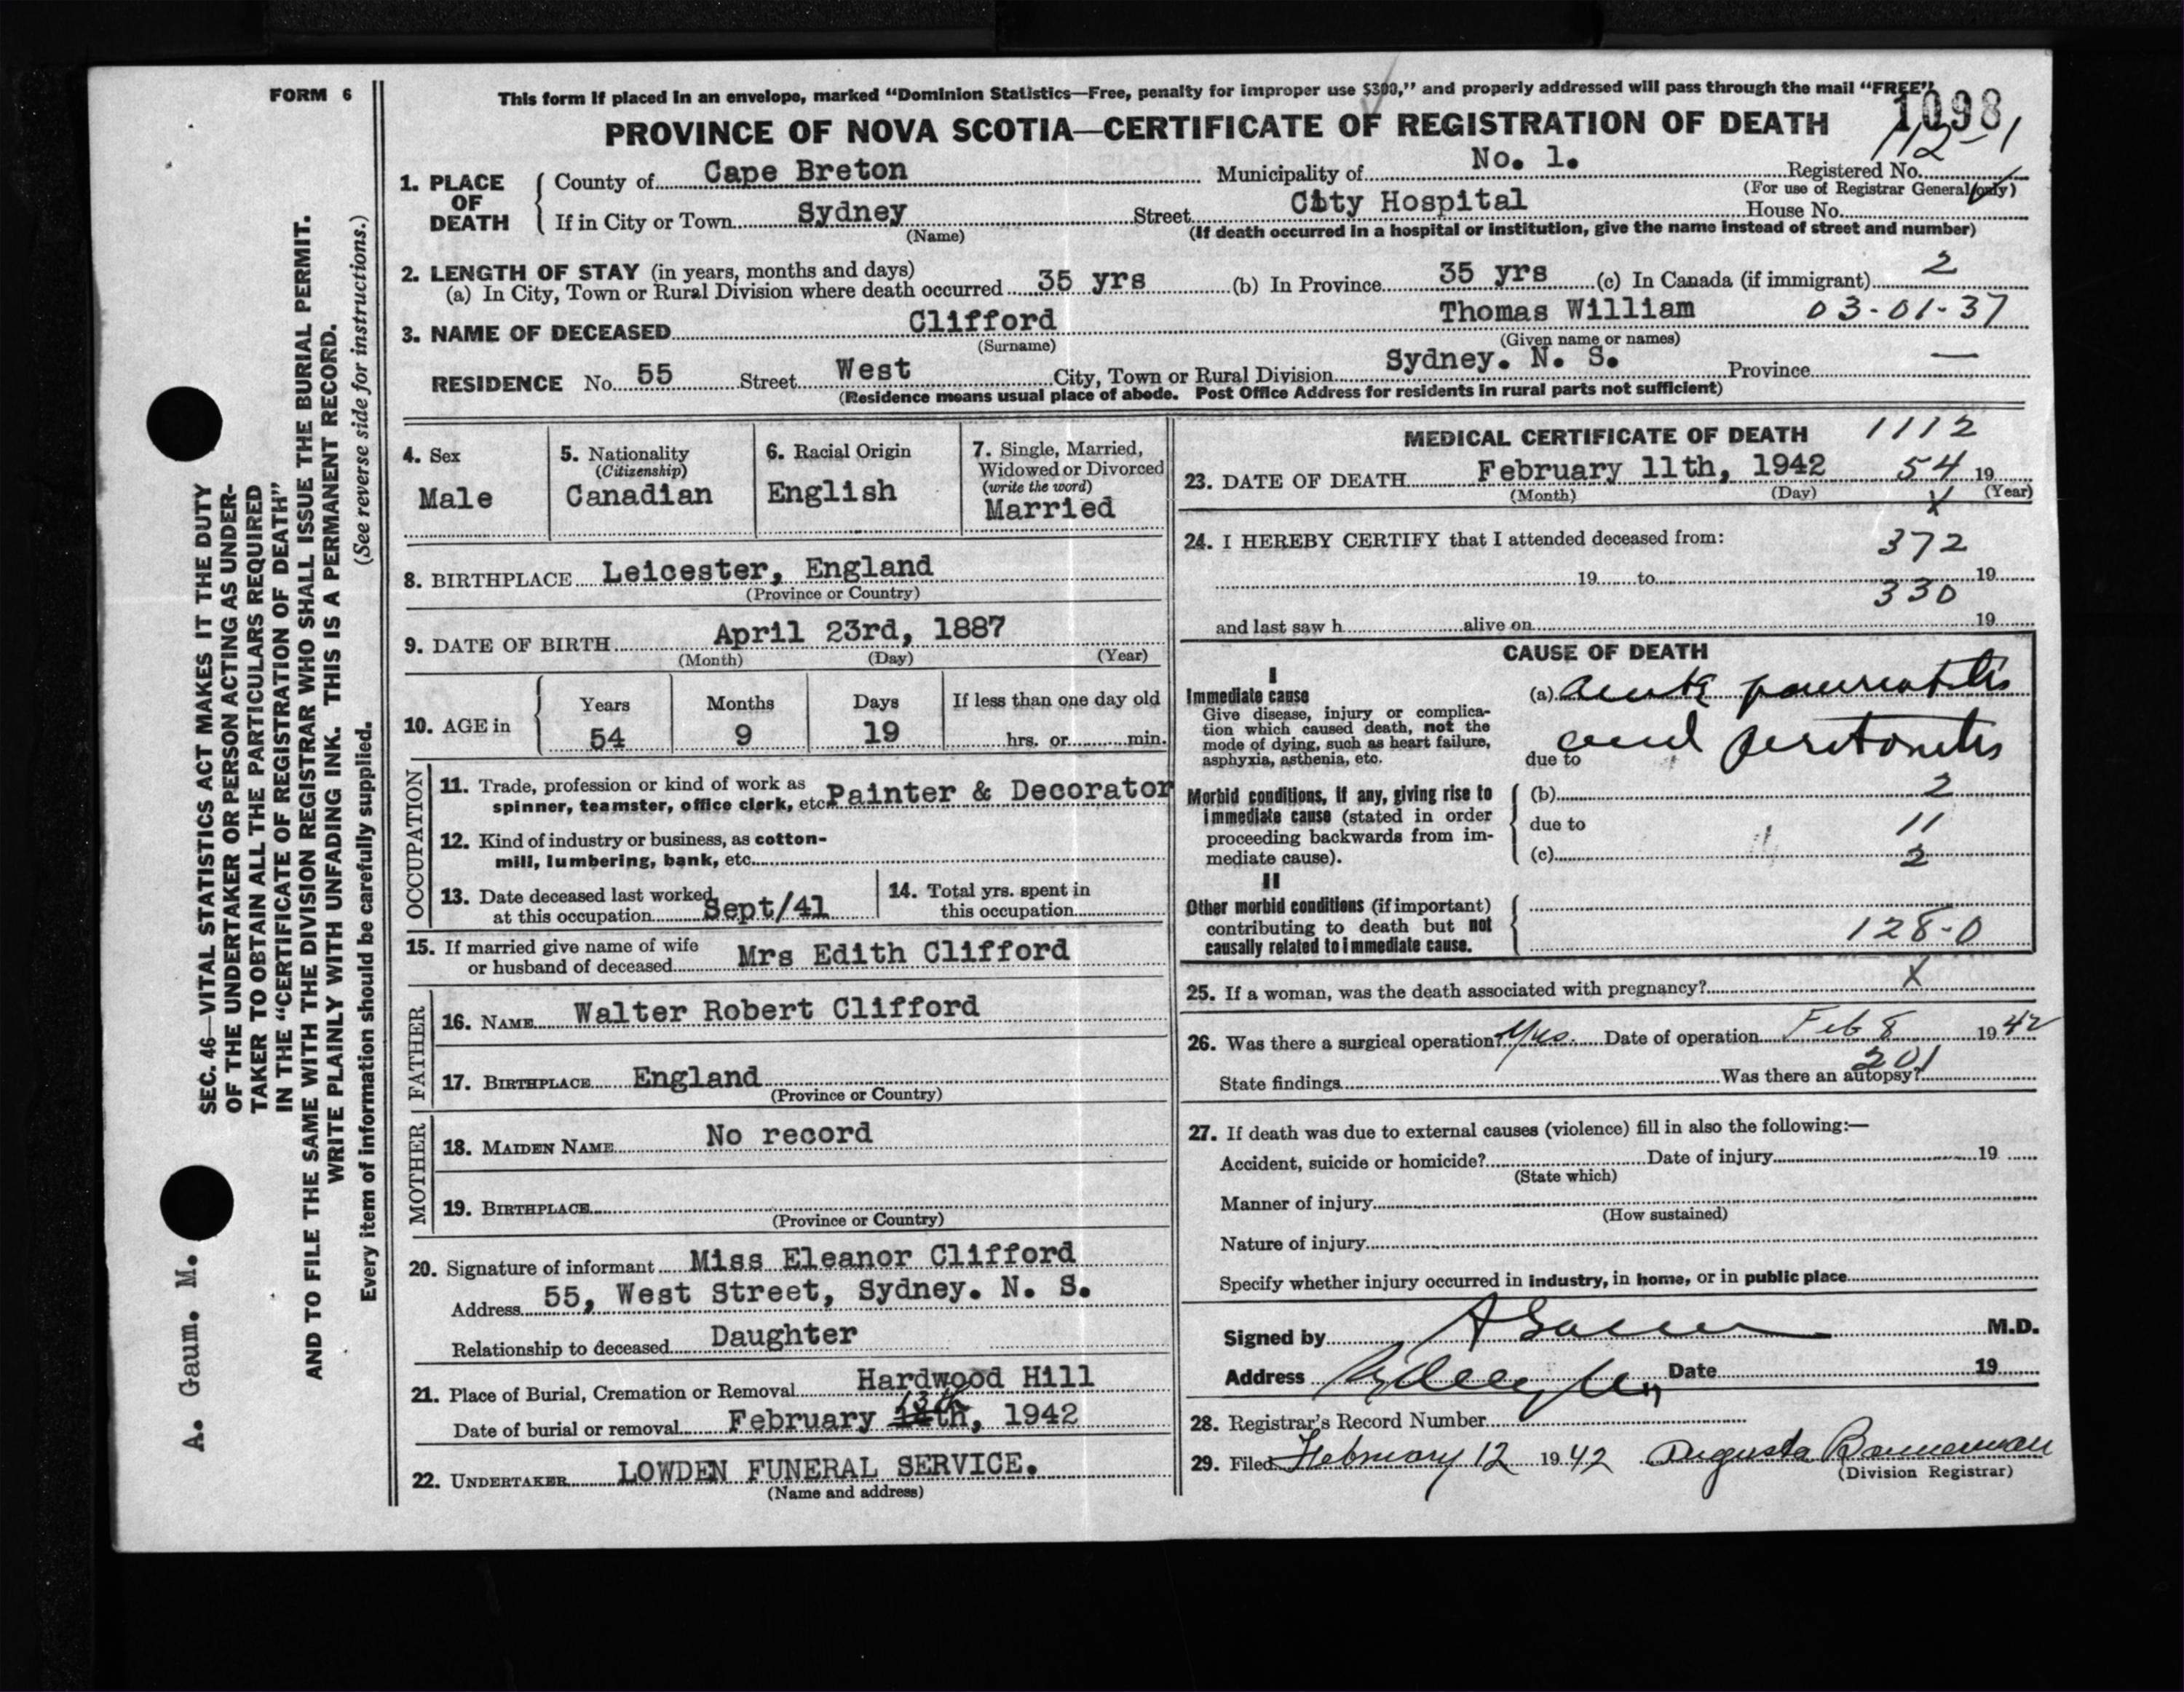 FORM 6
This form if placed in an envelope, marked "Dominion Statistics—Free, penalty for improper use $300," and properly addressed will pass through the mail "FREE"
1098
PROVINCE OF NOVA SCOTIA—CERTIFICATE OF REGISTRATION OF DEATH
112-1
1. PLACE OF DEATH
County of Cape Breton Municipality of No. 1. Registered No.
(For use of Registrar General only)
If in City or Town Sydney Street City Hospital House No.
(Name) (If death occurred in a hospital or institution, give the name instead of street and number)
2. LENGTH OF STAY (in years, months and days)
(a) In City, Town or Rural Division where death occurred 35 yrs (b) In Province 35 yrs (c) In Canada (if immigrant) 2
3. NAME OF DECEASED Clifford Thomas William 03-01-37
(Surname) (Given name or names)
RESIDENCE No. 55 Street West City, Town or Rural Division Sydney. N. S. Province —
(Residence means usual place of abode. Post Office Address for residents in rural parts not sufficient)
4. Sex
Male
5. Nationality
(Citizenship)
Canadian
6. Racial Origin
English
7. Single, Married, Widowed or Divorced
(write the word)
Married
8. BIRTHPLACE Leicester, England
(Province or Country)
9. DATE OF BIRTH April 23rd, 1887
(Month) (Day) (Year)
10. AGE in
Years Months Days If less than one day old
54 9 19 hrs. or min.
OCCUPATION
11. Trade, profession or kind of work as
spinner, teamster, office clerk, etc. Painter & Decorator
12. Kind of industry or business, as cotton-
mill, lumbering, bank, etc.
13. Date deceased last worked
at this occupation Sept/41
14. Total yrs. spent in
this occupation
15. If married give name of wife
or husband of deceased Mrs Edith Clifford
FATHER
16. NAME Walter Robert Clifford
17. BIRTHPLACE England
(Province or Country)
MOTHER
18. MAIDEN NAME No record
19. BIRTHPLACE
(Province or Country)
20. Signature of informant Miss Eleanor Clifford
Address 55, West Street, Sydney. N. S.
Relationship to deceased Daughter
21. Place of Burial, Cremation or Removal Hardwood Hill
13th
Date of burial or removal February 14th, 1942
22. UNDERTAKER LOWDEN FUNERAL SERVICE.
(Name and address)
MEDICAL CERTIFICATE OF DEATH 1112
23. DATE OF DEATH February 11th, 1942 54 19
(Month) (Day) (Year)
X
24. I HEREBY CERTIFY that I attended deceased from:
372
19 to 19
330
and last saw h alive on 19
CAUSE OF DEATH
I
Immediate cause
Give disease, injury or complica-
tion which caused death, not the
mode of dying, such as heart failure,
asphyxia, asthenia, etc.
(a) acute pancreatitis
and peritonitis
due to
Morbid conditions, if any, giving rise to
immediate cause (stated in order
proceeding backwards from im-
mediate cause).
(b) 2
due to 11
(c) 2
II
Other morbid conditions (if important)
contributing to death but not
causally related to immediate cause.
128-0
25. If a woman, was the death associated with pregnancy? X
26. Was there a surgical operation? Yes. Date of operation Feb 8 1942
201
State findings Was there an autopsy?
27. If death was due to external causes (violence) fill in also the following:—
Accident, suicide or homicide? Date of injury 19
(State which)
Manner of injury
(How sustained)
Nature of injury
Specify whether injury occurred in industry, in home, or in public place
Signed by A Gaum M.D.
Address Sydney Date 19
28. Registrar's Record Number
29. Filed February 12 1942 Augusta Bannerman
(Division Registrar)
SEC. 46—VITAL STATISTICS ACT MAKES IT THE DUTY
OF THE UNDERTAKER OR PERSON ACTING AS UNDER-
TAKER TO OBTAIN ALL THE PARTICULARS REQUIRED
IN THE "CERTIFICATE OF REGISTRATION OF DEATH"
AND TO FILE THE SAME WITH THE DIVISION REGISTRAR WHO SHALL ISSUE THE BURIAL PERMIT.
WRITE PLAINLY WITH UNFADING INK. THIS IS A PERMANENT RECORD.
(See reverse side for instructions.)
Every item of information should be carefully supplied.
A. Gaum. M.